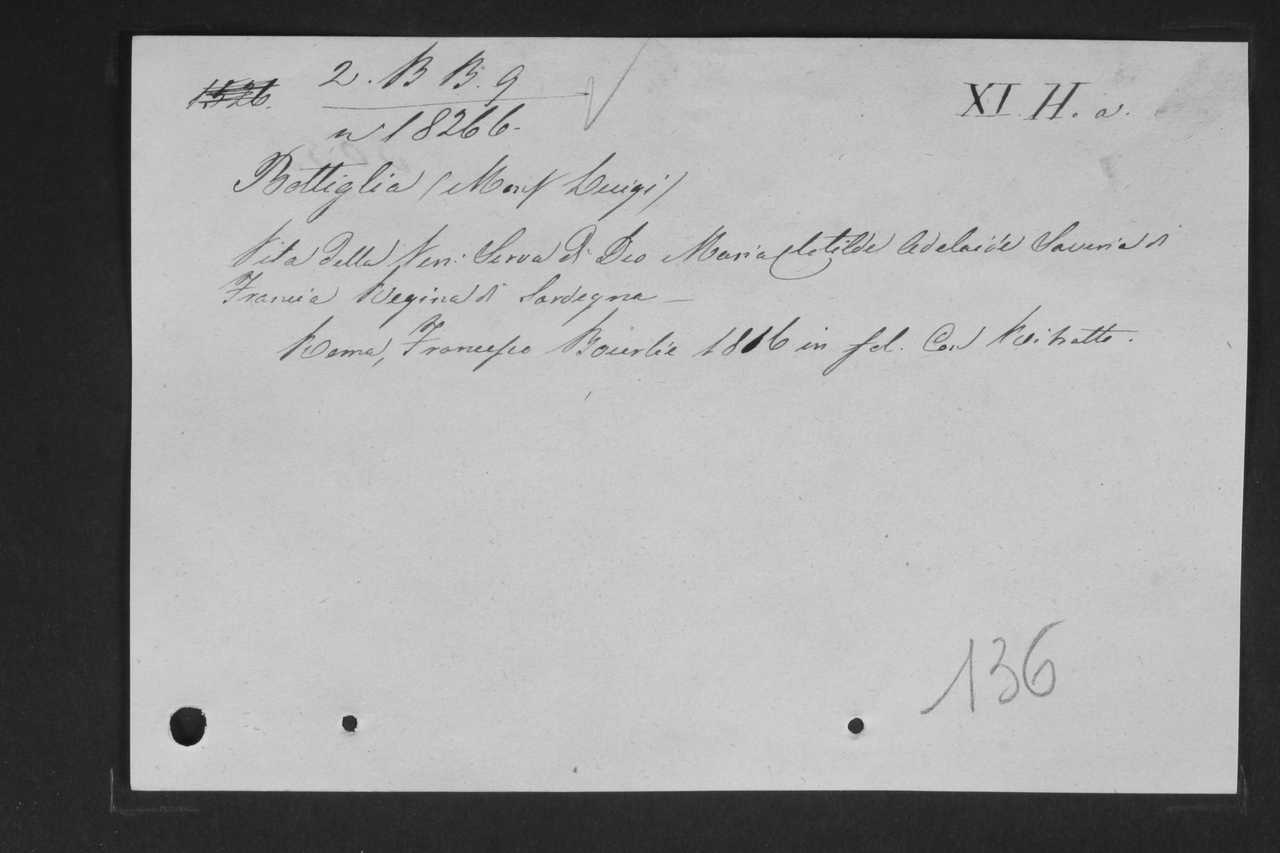 1526.
2. B B. 9
n 18266.
XI. H. a.
Bottiglia (Mons Luigi)
Vita della Ven: Serva di Dio Maria Clotilde Adelaide Saveria di
Francia Regina di Sardegna —
Roma, Francesco Bourlie 1816 in fol. Con Ritratto.
136